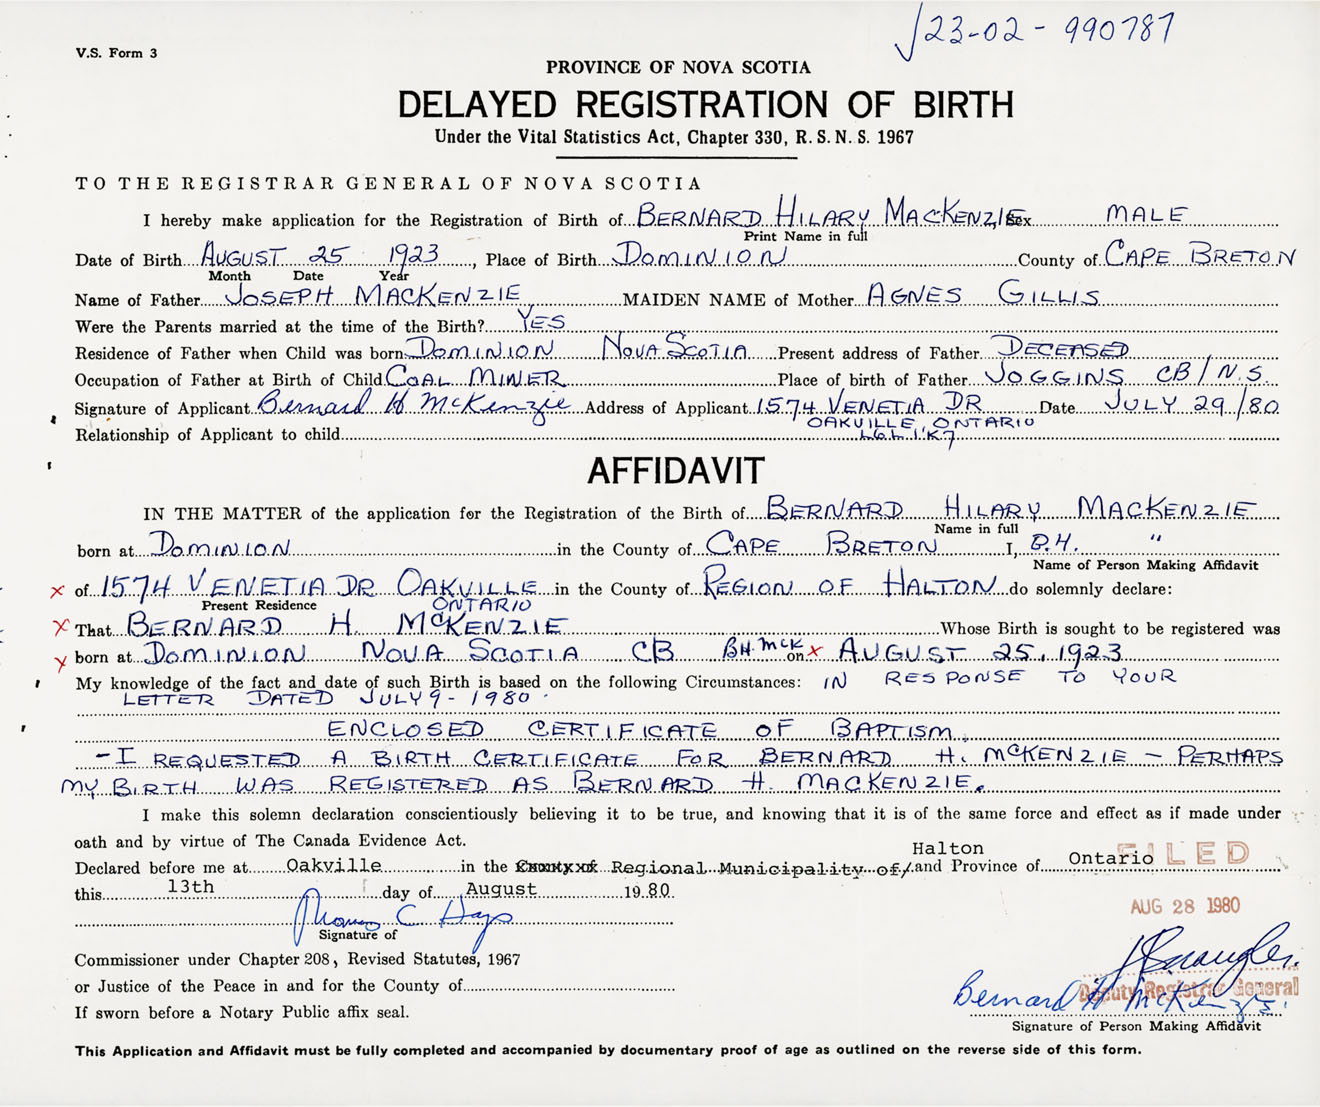 √23-02-990787
V.S. Form 3
PROVINCE OF NOVA SCOTIA
DELAYED REGISTRATION OF BIRTH
Under the Vital Statistics Act, Chapter 330, R. S. N. S. 1967
TO THE REGISTRAR GENERAL OF NOVA SCOTIA
I hereby make application for the Registration of Birth of BERNARD HILARY MACKENZIE Sex MALE
Print Name in full
Date of Birth AUGUST 25 1923, Place of Birth DOMINION County of CAPE BRETON
Month Date Year
Name of Father JOSEPH MACKENZIE MAIDEN NAME of Mother AGNES GILLIS
Were the Parents married at the time of the Birth? YES
Residence of Father when Child was born DOMINION NOVA SCOTIA Present address of Father DECEASED
Occupation of Father at Birth of Child COAL MINER Place of birth of Father JOGGINS CB/N.S.
Signature of Applicant Bernard H McKenzie Address of Applicant 1574 VENETIA DR Date JULY 29/80
OAKVILLE, ONTARIO
Relationship of Applicant to child L6L 1K7
AFFIDAVIT
IN THE MATTER of the application for the Registration of the Birth of BERNARD HILARY MACKENZIE
Name in full
born at DOMINION in the County of CAPE BRETON I, B.H. "
Name of Person Making Affidavit
x of 1574 VENETIA DR OAKVILLE in the County of REGION OF HALTON do solemnly declare:
Present Residence ONTARIO
x That BERNARD H. MCKENZIE Whose Birth is sought to be registered was
x born at DOMINION NOVA SCOTIA CB B.H. McK on x AUGUST 25, 1923
My knowledge of the fact and date of such Birth is based on the following Circumstances: IN RESPONSE TO YOUR
LETTER DATED JULY 9-1980
ENCLOSED CERTIFICATE OF BAPTISM
- I REQUESTED A BIRTH CERTIFICATE FOR BERNARD H. MCKENZIE - PERHAPS
MY BIRTH WAS REGISTERED AS BERNARD H. MACKENZIE.
I make this solemn declaration conscientiously believing it to be true, and knowing that it is of the same force and effect as if made under
oath and by virtue of The Canada Evidence Act.
Halton
Declared before me at Oakville in the County of Regional Municipality of/and Province of Ontario
FILED
this 13th day of August 1980
AUG 28 1980
Signature of
Commissioner under Chapter 208, Revised Statutes, 1967
or Justice of the Peace in and for the County of
Deputy Registrar General
Bernard H McKenzie
If sworn before a Notary Public affix seal.
Signature of Person Making Affidavit
This Application and Affidavit must be fully completed and accompanied by documentary proof of age as outlined on the reverse side of this form.